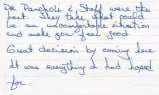 Dr Pancholi & Staff were the
best. They take what could
be an uncomfortable situation
and make you feel good
Great decision by coming here
It was everything I had hoped
for.